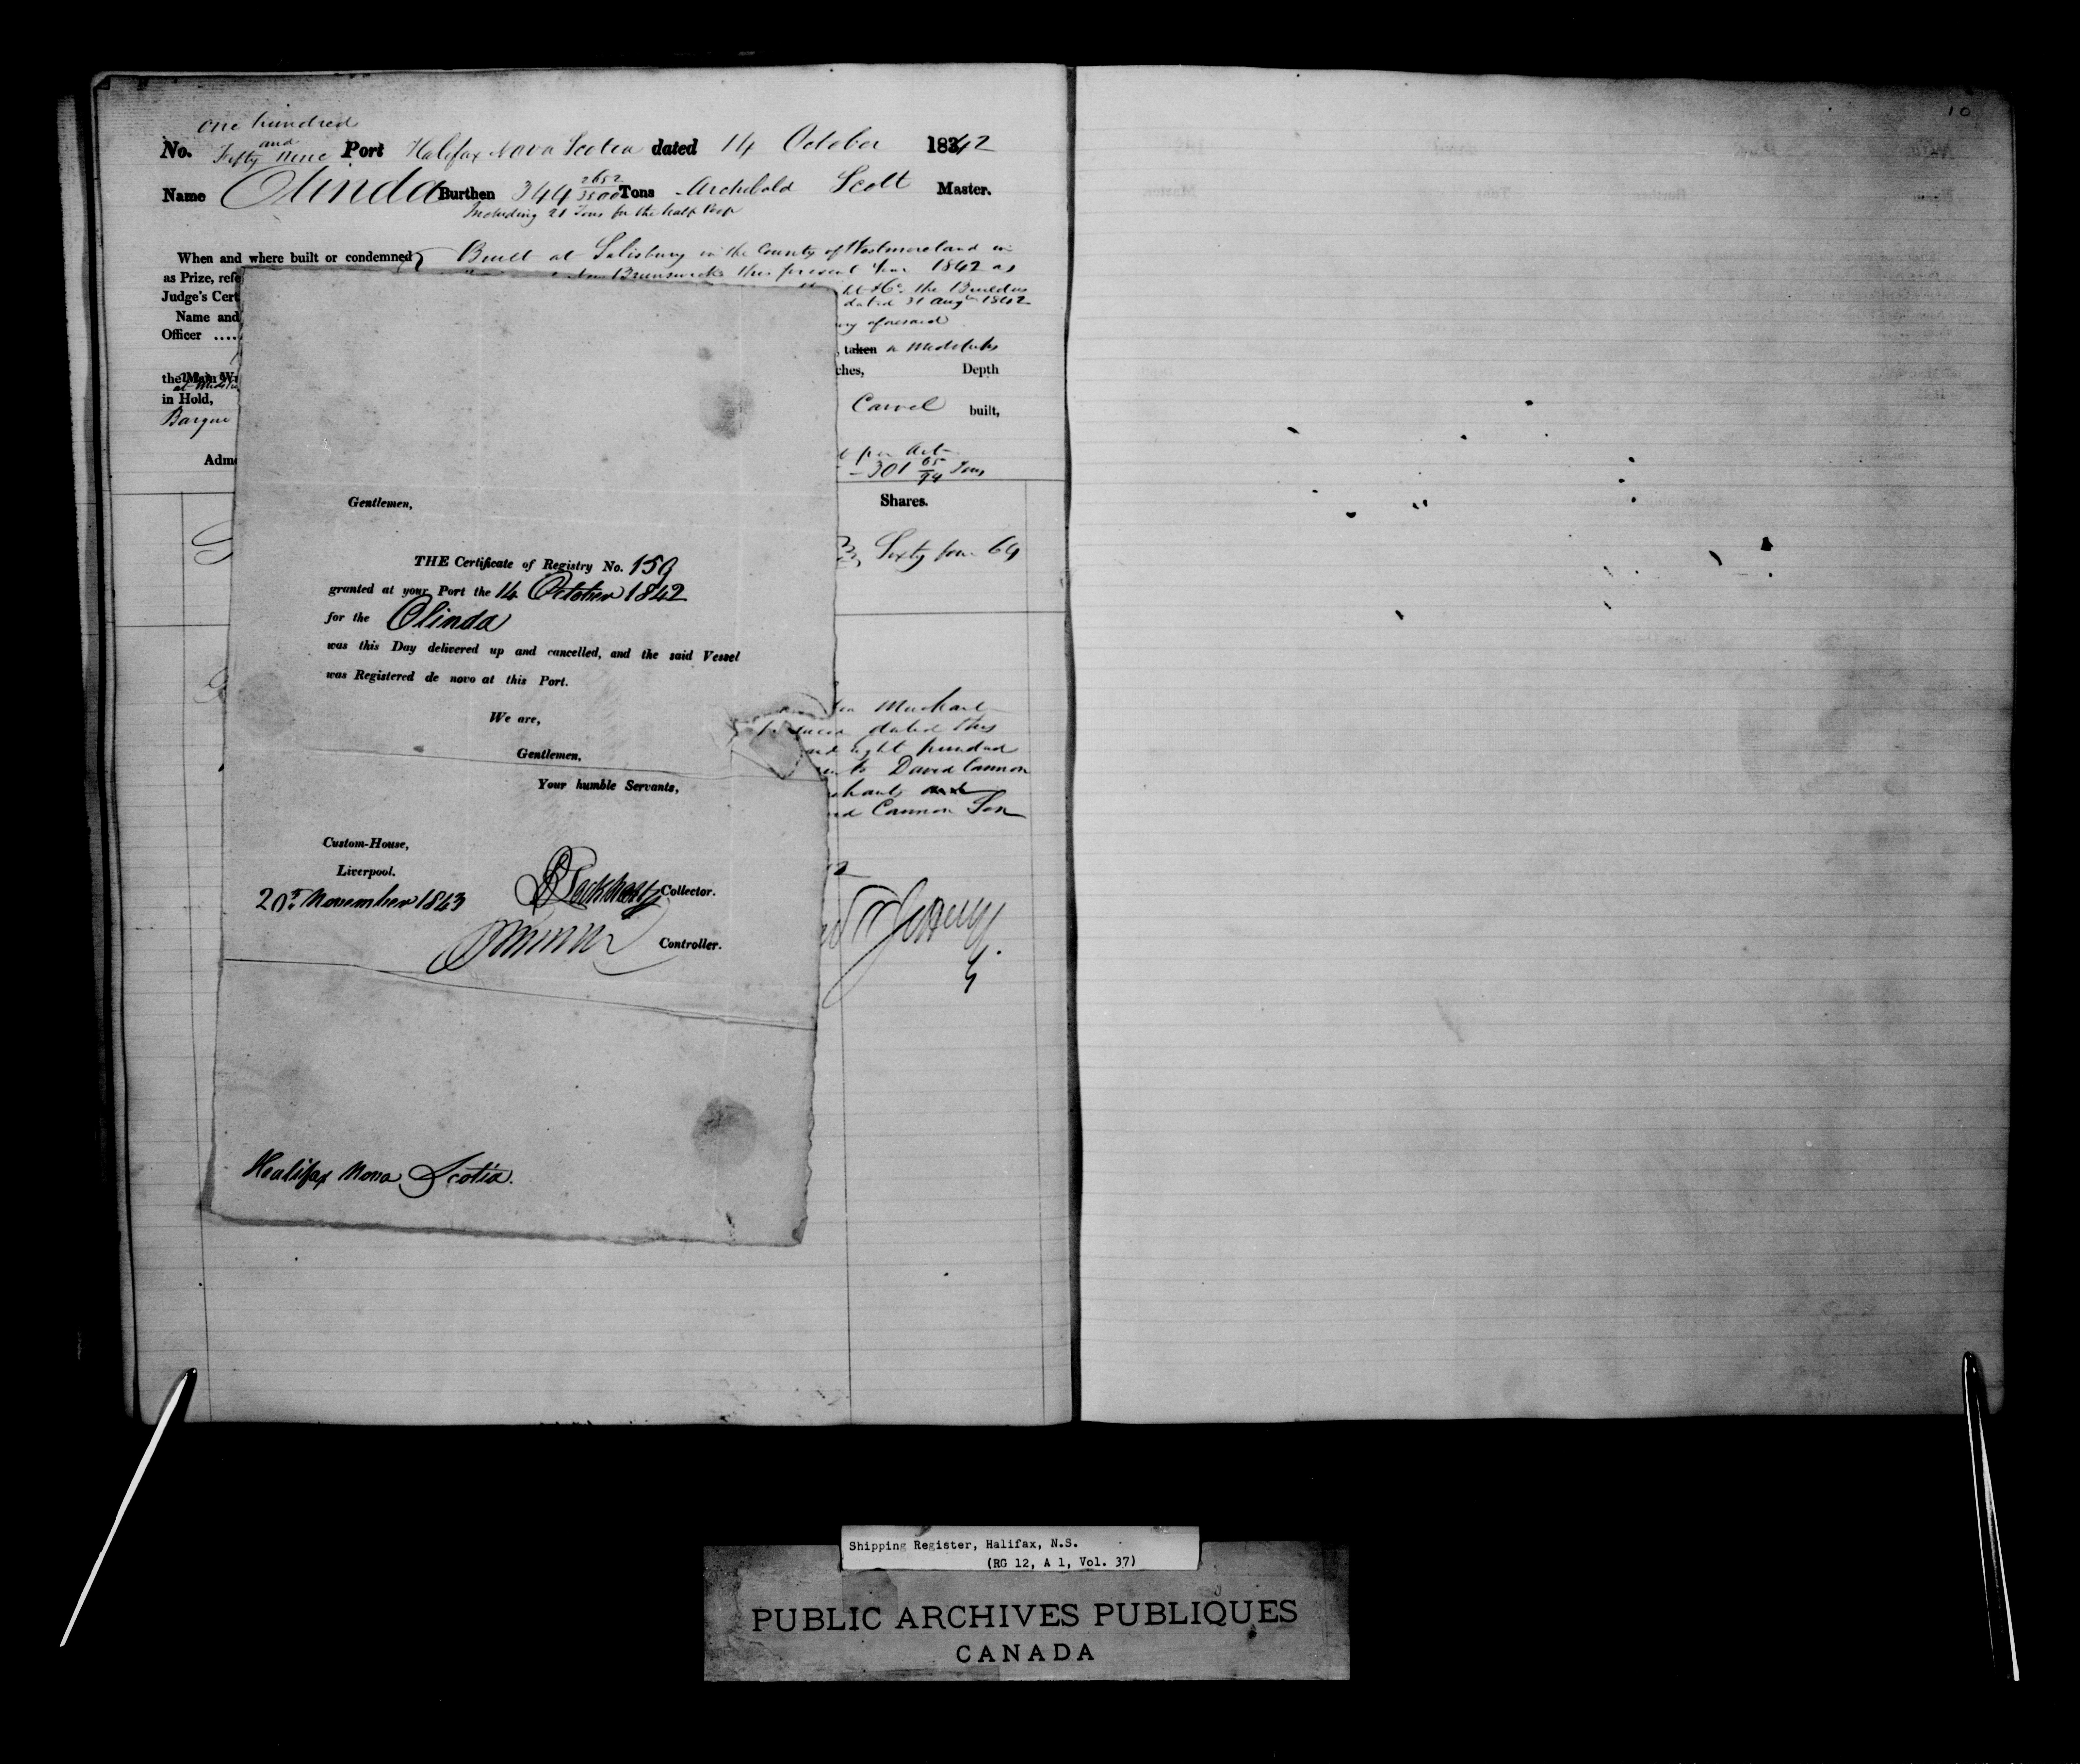 one hundred
and
No. Fifty nine Port Halifax Nova Scotia dated 14 October 1842
Name Olinda Burthen 344 2652/3500 Tons Archibald Scott Master.
Including 21 Tons for the half Poop
When and where built or condemned Built at Salisbury in the County of Westmoreland in
as Prize, refe New Brunswick this present Year 1842 as
Judge's Cert & Co. the Builders
dated 31 Augt 1842
Name and
Officer .... aforesaid
, taken a midships
the Main W ches, Depth
in Hold,
Barque Carvel built,
Adm per Act
301 65/94 Tons
Shares.
Sixty four 64
Gentlemen,
THE Certificate of Registry No. 159
granted at your Port the 14 October 1842
for the Olinda
was this Day delivered up and cancelled, and the said Vessel
was Registered de novo at this Port.
We are,
Gentlemen,
Your humble Servants,
Custom-House,
Liverpool.
20th November 1843
Collector.
Controller.
Halifax Nova Scotia.
dated this
eight hundred
to David Cannon
Cannon Son
10
Shipping Register, Halifax, N.S.
(RG 12, A 1, Vol. 37)
PUBLIC ARCHIVES PUBLIQUES
CANADA